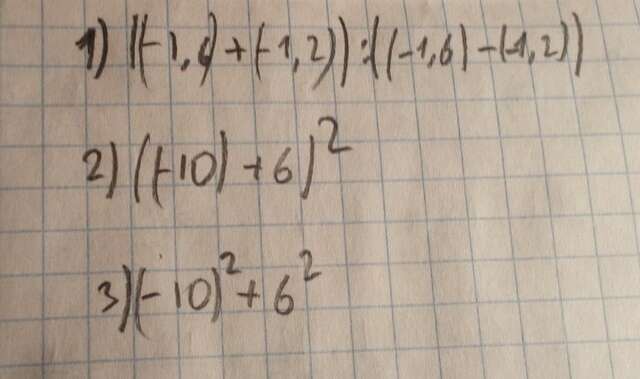 1) ((-1,6)+(-1,2)):((-1,6)-(-1,2))
2) ((-10)+6)²
3) (-10)²+6²